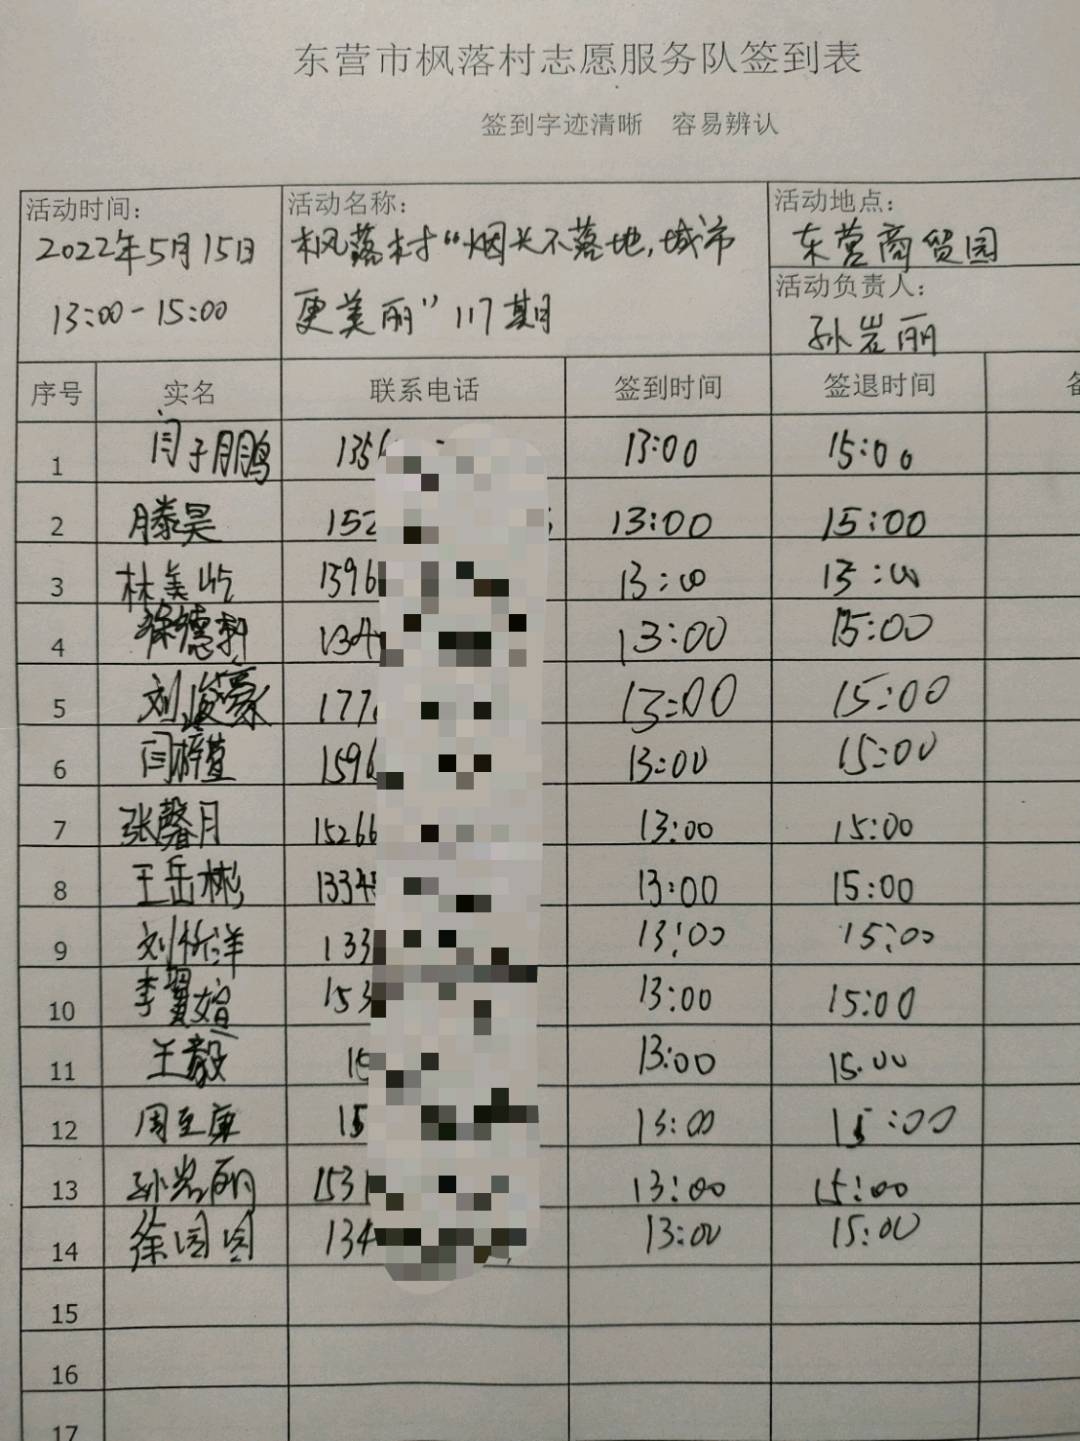 东营市枫落村志愿服务队签到表
签到字迹清晰 容易辨认
活动时间：
2022年5月15日
13:00-15:00
活动名称：
枫落村“烟头不落地，城市
更美丽”117期
活动地点：
东营商贸园
活动负责人：
孙岩丽
序号 实名 联系电话 签到时间 签退时间
1 闫子鹏 135 13:00 15:00
2 滕昊 152 13:00 15:00
3 林美屹 1596 13:00 15:00
4 徐德 134 13:00 15:00
5 刘俊豪 177 13:00 15:00
6 闫梓萱 1596 13:00 15:00
7 张馨月 15266 13:00 15:00
8 王岳彬 1334 13:00 15:00
9 刘忻洋 133 13:00 15:00
10 李翼媗 153 13:00 15:00
11 王毅 15 13:00 15.00
12 周至康 15 13:00 15:00
13 孙岩丽 1531 13:00 15:00
14 徐园园 134 13:00 15:00
15
16
17